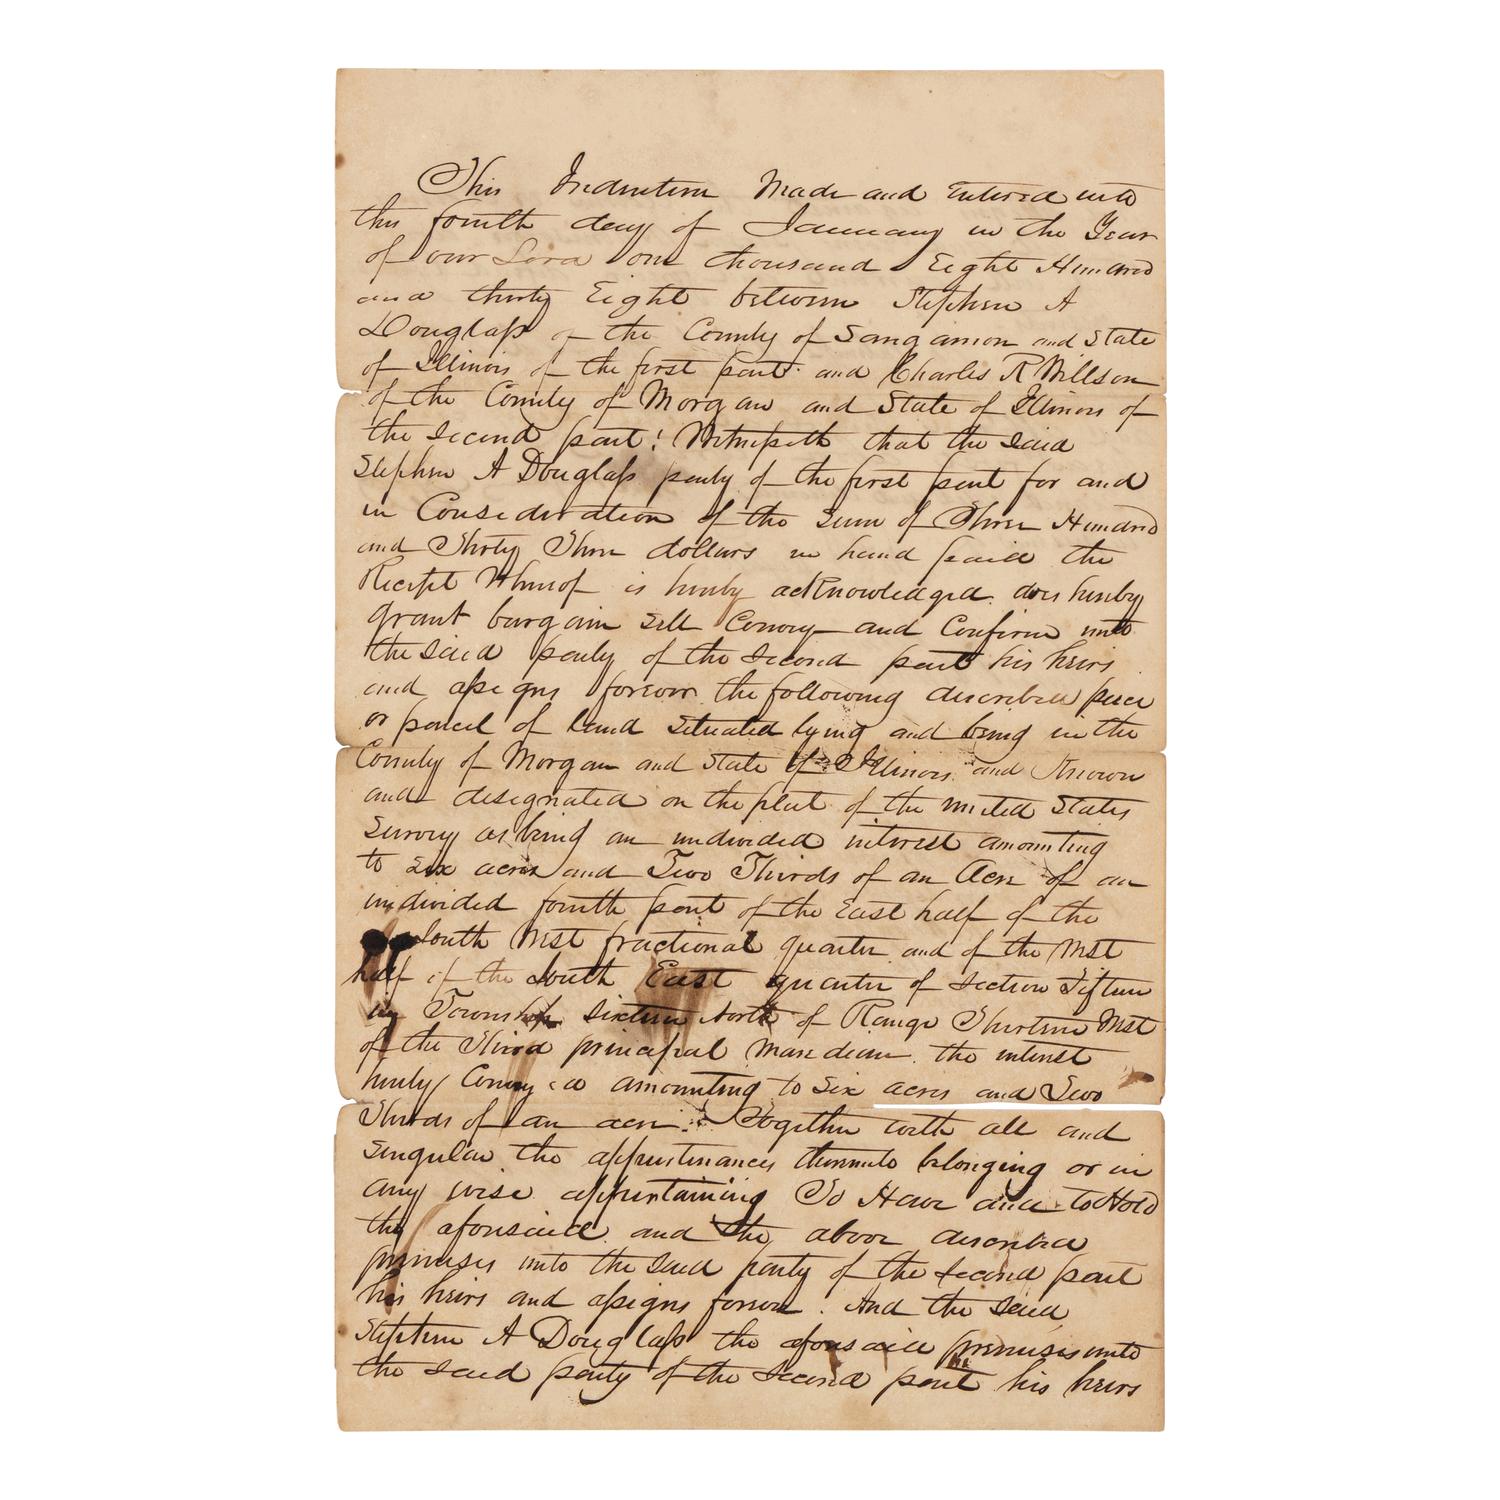 This Indenture Made and Entered into
this fourth day of January in the Year
of our Lord one thousand Eight Hundred
and thirty Eight between Stephen A
Douglass of the County of Sangamon and State
of Illinois of the first part and Charles R Willson
of the County of Morgan and State of Illinois of
the second part! Witnesseth that the said
Stephen A Douglass party of the first part for and
in Consideration of the sum of Three Hundred
and Thirty Three dollars in hand paid the
Receipt Whereof is hereby acknowledged does hereby
grant bargain sell Convey and Confirm unto
the said party of the second part his heirs
and assigns forever the following described peace
or parcel of land situated lying and being in the
County of Morgan and State of Illinois and Known
and designated on the plat of the united States
Survey as being an undivided interest amounting
to six acres and Two Thirds of an Acre of an
undivided fourth part of the East half of the
South West fractional quarter and of the West
half of the South East quarter of section Fifteen
in Township sixteen North of Range Thirteen West
of the Third principal Maredian the interest
hereby Conveyed amounting to six acres and Two
Thirds of an acre. Together with all and
Singular the appurtinances thereunto belonging or in
any wise appertaining To Have and to Hold
the aforesaid and the above described
premises unto the said party of the second part
his heirs and assigns forever. And the said
Stephen A Douglass the aforesaid premises unto
the said party of the second part his heirs